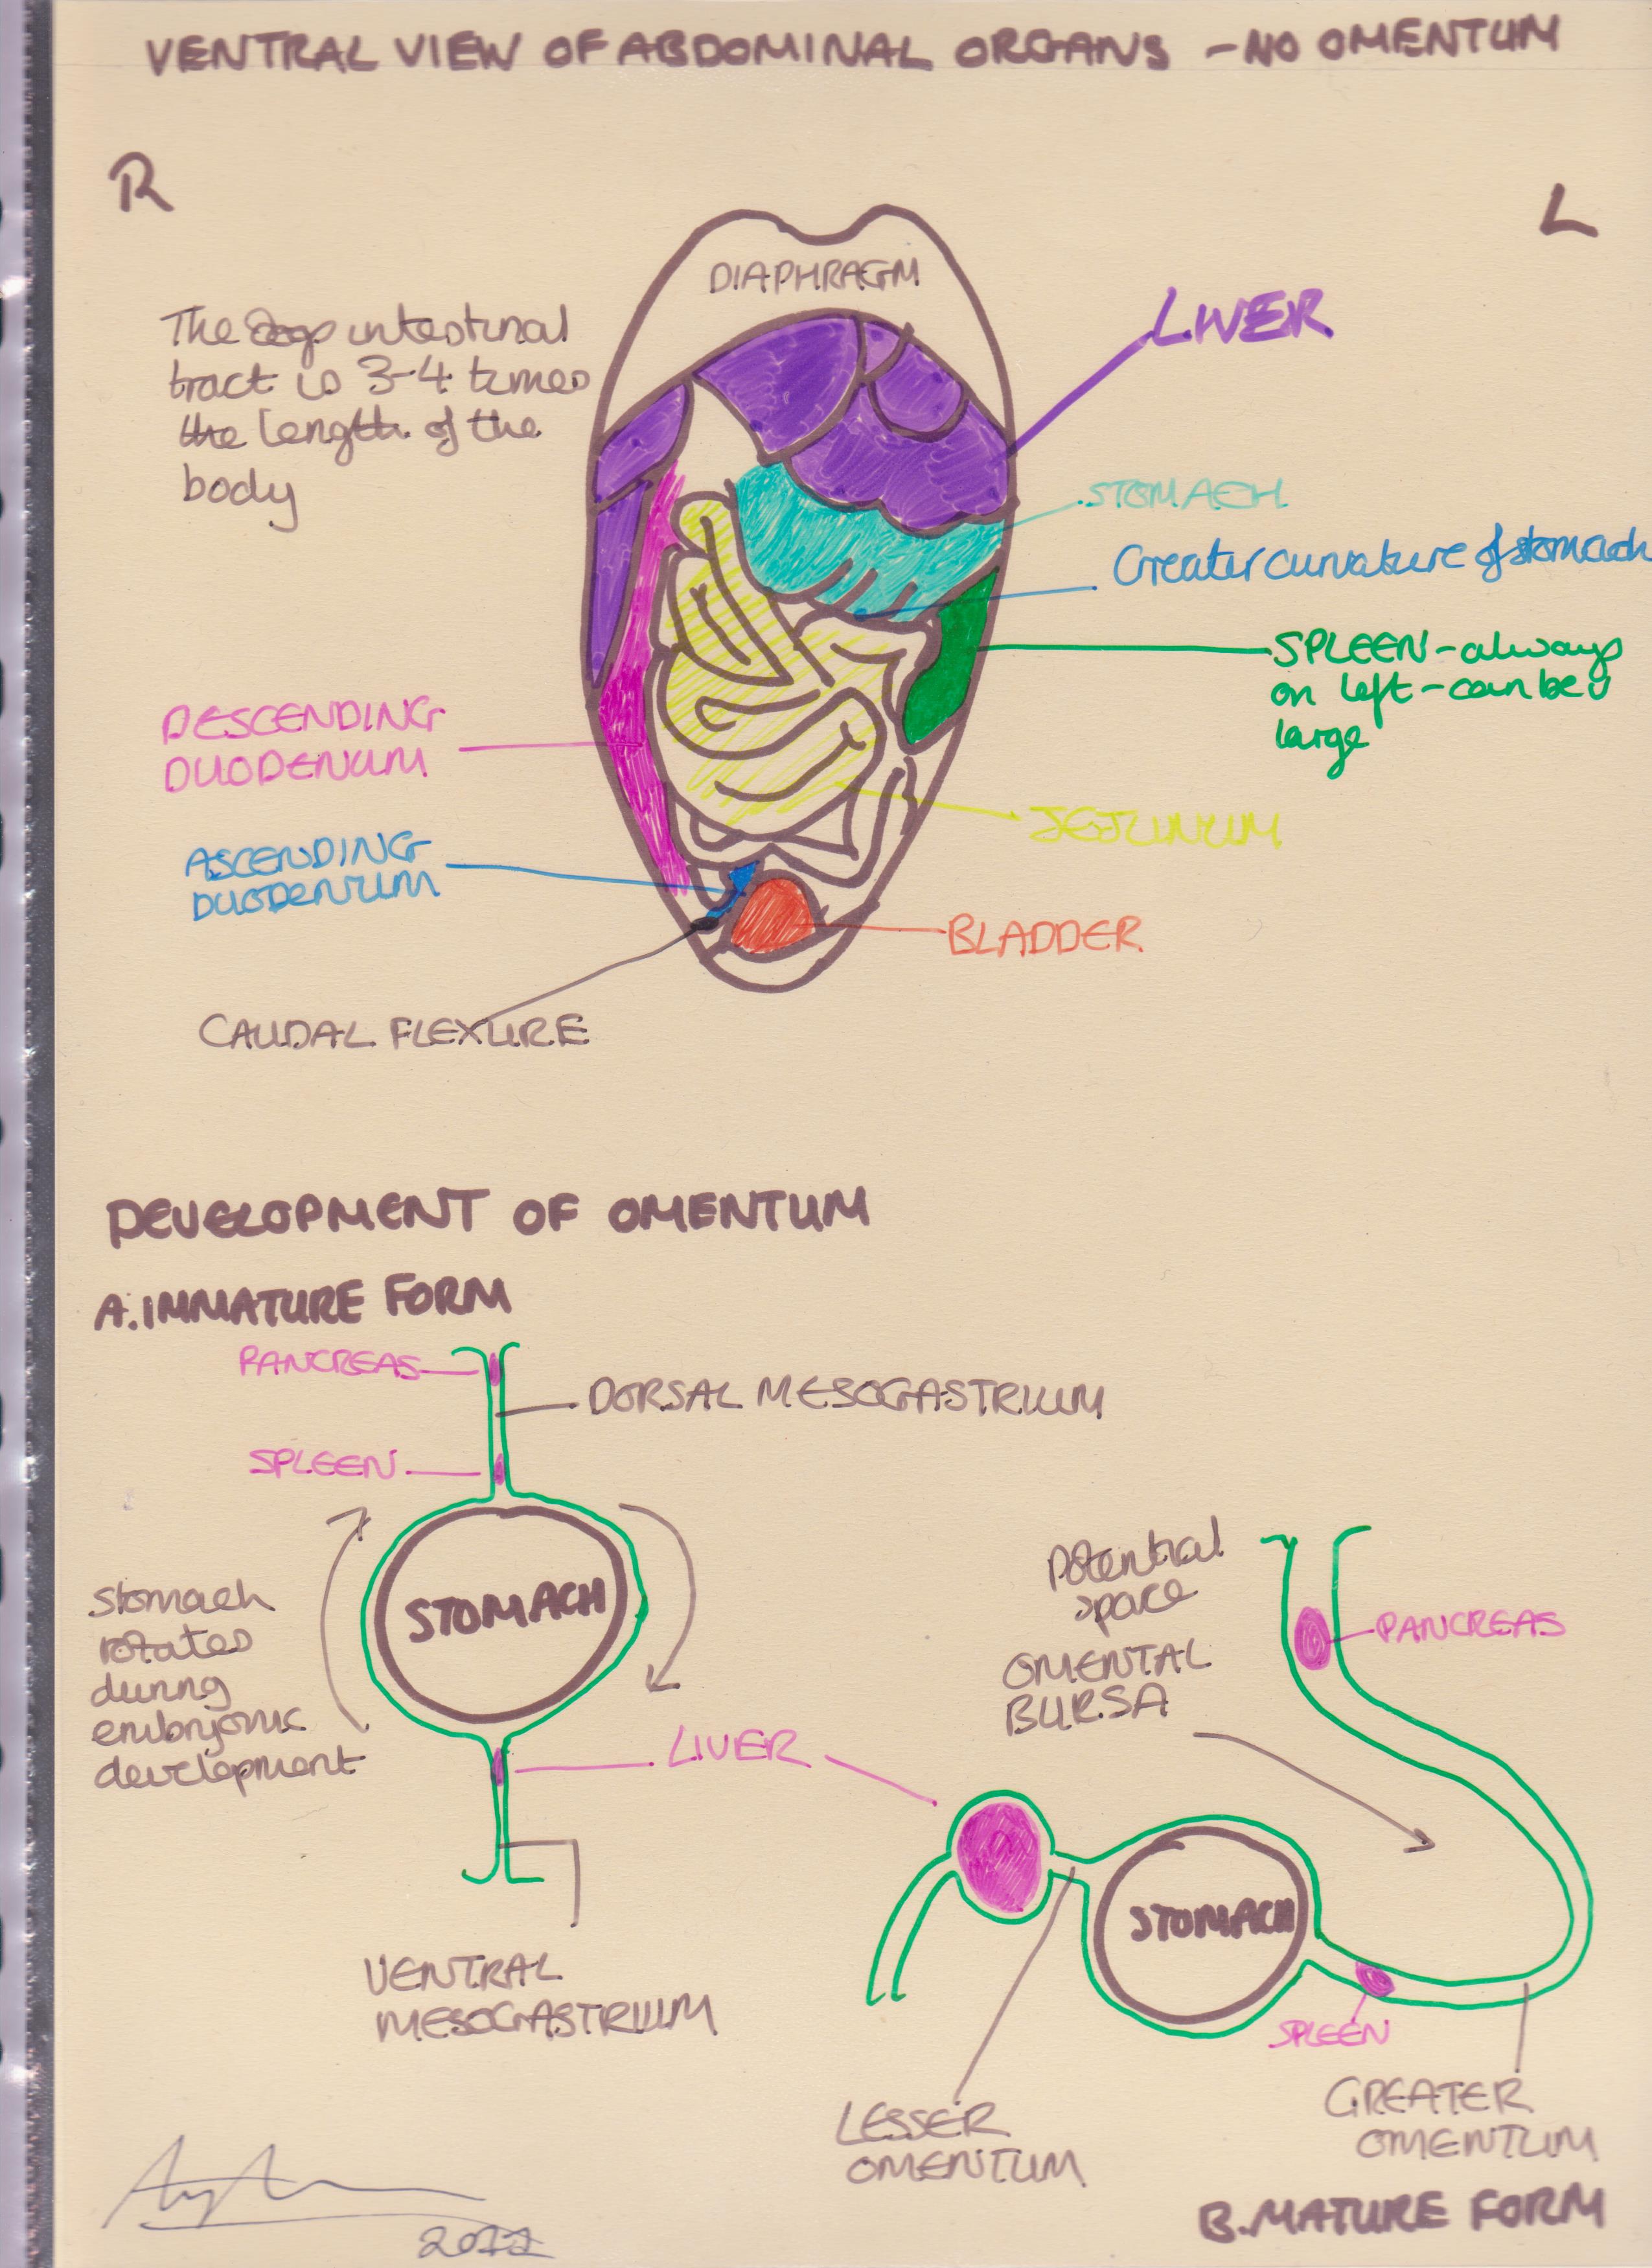 VENTRAL VIEW OF ABDOMINAL ORGANS - NO OMENTUM
R
L
DIAPHRAGM
The dogs intestinal
tract is 3-4 times
the length of the
body
LIVER
STOMACH
Greater curvature of stomach
SPLEEN - always
on left - can be
large
DESCENDING
DUODENUM
JEJUNUM
ASCENDING
DUODENUM
BLADDER
CAUDAL FLEXURE
DEVELOPMENT OF OMENTUM
A. IMMATURE FORM
PANCREAS
DORSAL MESOGASTRIUM
SPLEEN
STOMACH
stomach
rotates
during
embryonic
development
LIVER
VENTRAL
MESOGASTRIUM
Potential
space
OMENTAL
BURSA
PANCREAS
STOMACH
SPLEEN
LESSER
OMENTUM
GREATER
OMENTUM
B. MATURE FORM